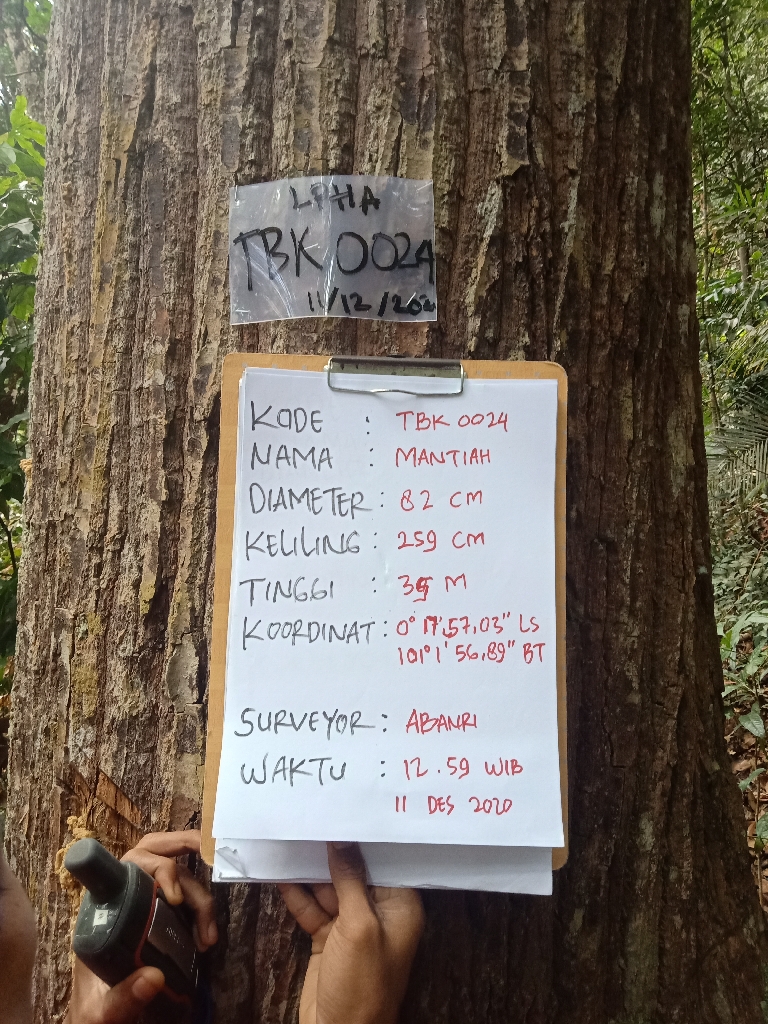 LPHA
TBK 0024
11/12/202
KODE : TBK 0024
NAMA : MANTIAH
DIAMETER : 82 CM
KELILING : 259 CM
TINGGI : 35 M
KOORDINAT : 0° 17' 57,03" LS
101° 1' 56,89" BT
SURVEYOR : ABANRI
WAKTU : 12.59 WIB
11 DES 2020